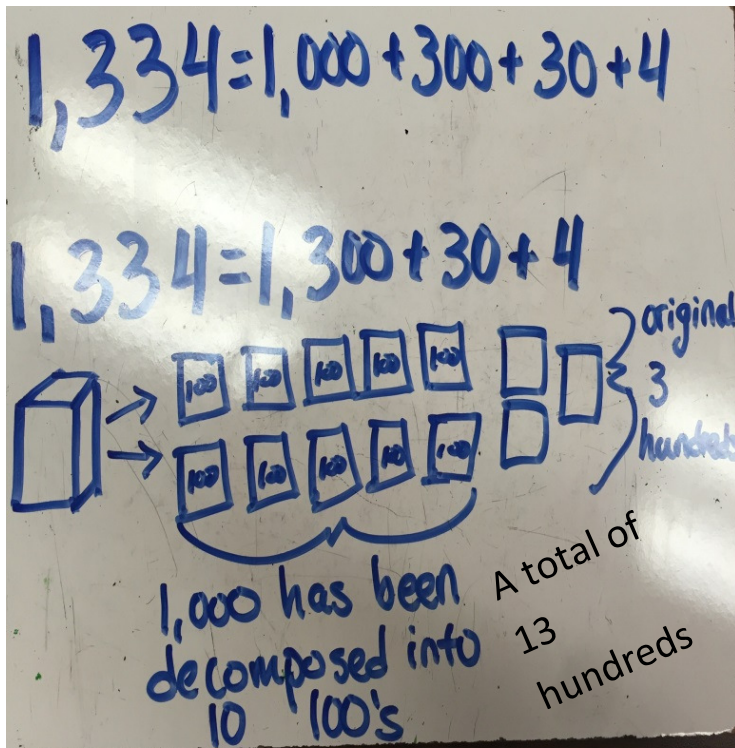 1,334=1,000+300+30+4
1,334=1,300+30+4
100 100 100 100 100
100 100 100 100 100
original
3
hundreds
1,000 has been
decomposed into
10 100's
A total of
13
hundreds